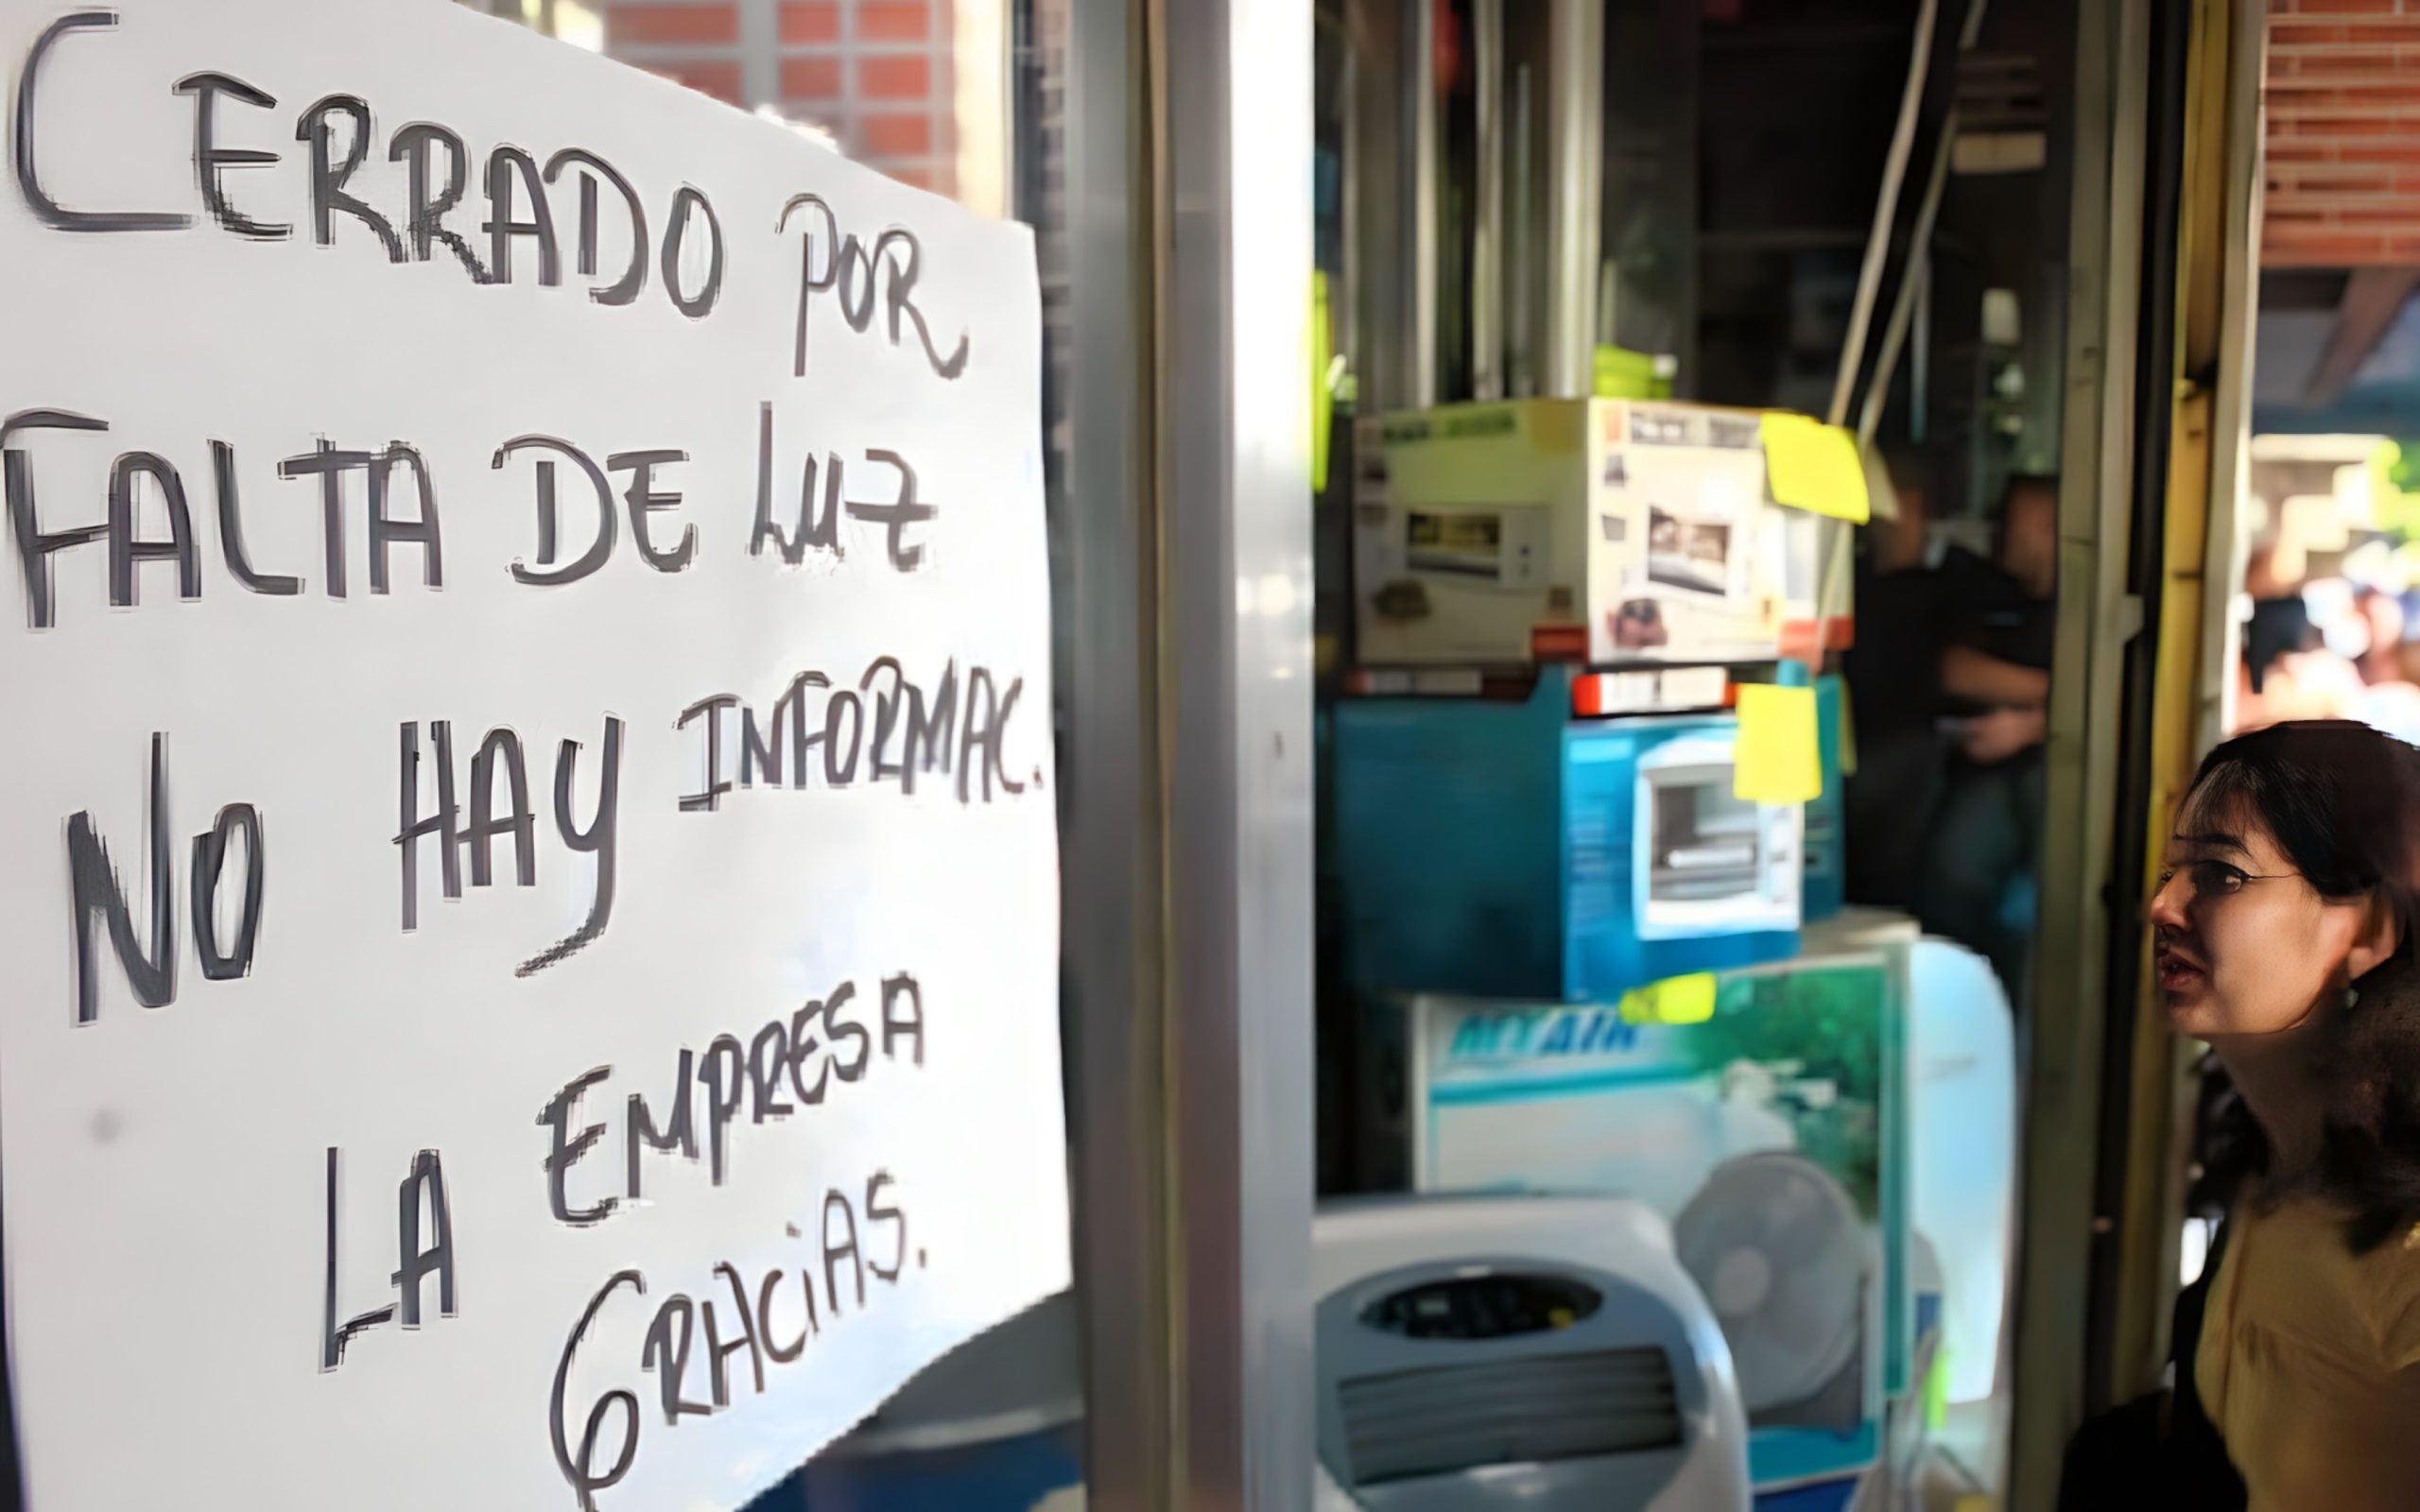 CERRADO POR
FALTA DE LUZ
NO HAY INFORMAC.
LA EMPRESA
GRACiAS.
MYAIR